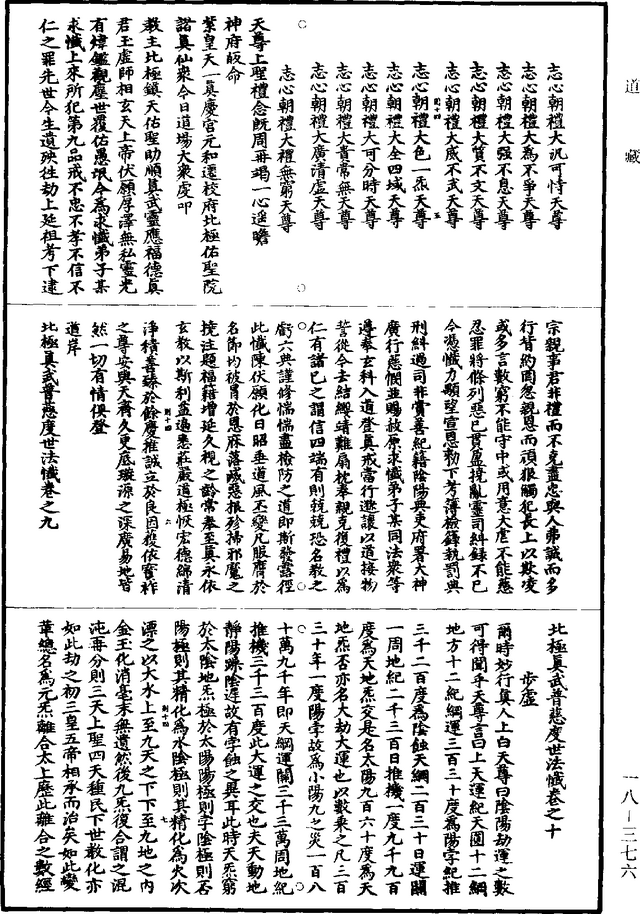 道藏
志心朝禮大汎可恃天尊
志心朝禮大為不爭天尊
志心朝禮大强不息天尊
志心朝禮大質不文天尊
志心朝禮大威不武天尊
志心朝禮大色一炁天尊
志心朝禮大全四域天尊
志心朝禮大可分時天尊
志心朝禮大貴常無天尊
志心朝禮大廣清虛天尊
志心朝禮大禮無窮天尊
天尊上聖禮念旣周再竭一心遥瞻
神府皈命
紫皇天一真慶宮元和遷校府北極佑聖院
諸真仙衆今日道場大衆處叩
教主北極鎮天佑聖助順真武靈應福德真
君玉虛師相玄天上帝伏願厚澤無私靈光
有煒鑑觀塵世覆佑愚氓今為求懺弟子某
求懺上來所犯第九品戒不忠不孝不信不
仁之罪先世今生遺殃徃劫上延祖考下逮
宗親事君非禮而不克盡忠與人弗誠而多
行背約罔忽親恩而頑狠觸犯長上以欺凌
或多言數窮不能守中或用意大虐不能慈
忍罪將條列惡已貫盈撓亂靈司糾録不已
今憑懺力顒望宣恩勑下考簿檢鐸執罰典
刑糾過司非賞善紀籍陰陽典吏府署大神
廣行慈憫並賜赦原求懺弟子某同法衆等
遵奉玄科入道登真戒當行遜讓以道接物
誓從今去結纓請難扇枕奉親克復禮以為
仁有諸已之謂信四端有則兢兢恐名教之
虧六典謹修惴惴盡檢防之道即斯發露徑
此懺陳伏願化日昭垂道風丕變凡服膺於
名御均被冒於恩庥落滅惡根殄掃邪魔之
撓注題福籍增延久視之齡常奉至真永依
玄教以斯利益遍悉莊嚴道極恢宏德綿清
淨積善臻於餘慶推誠立於良因䕶依寳祚
之尊安與天齊久更底璇源之深廣易地皆
然一切有情俱登
道岸
北極真武普慈度世法懺卷之九
北極真武普慈度世法懺卷之十
步虛
爾時妙行真人上白天尊曰陰陽劫運之數
可得聞乎天尊言曰上天運紀天圓十二綱
地方十二紀綱運三百三十度為陽孛紀推
三千二百度為陰蝕天綱二百三十日運關
一周地紀二千三百日推機一度九千九百
度為天地炁交是名太陽九百六十度為天
地炁否亦名大劫大運也以數乘之凡三百
三十年一度陽孛故為小陽九之災一百八
十萬九千年即天綱運關三千三萬周地紀
推機三千三百度此大運之交也夫天動地
靜陽躁陰遲故有孛蝕之異耳此時天炁窮
於太陰地炁極於太陽陽極則孛陰極則否
陽極則其精化為水陰極則其精化為火次
漂之以大水上至九天之下下至九地之內
金玉化消毫末無遺然後九炁復合謂之混
沌再分則三天上聖四天種民下世敎化亦
如此劫之初三皇五帝相承而治矣如此變
革總名為元炁離合太上歷此離合之數經
一八—三七六